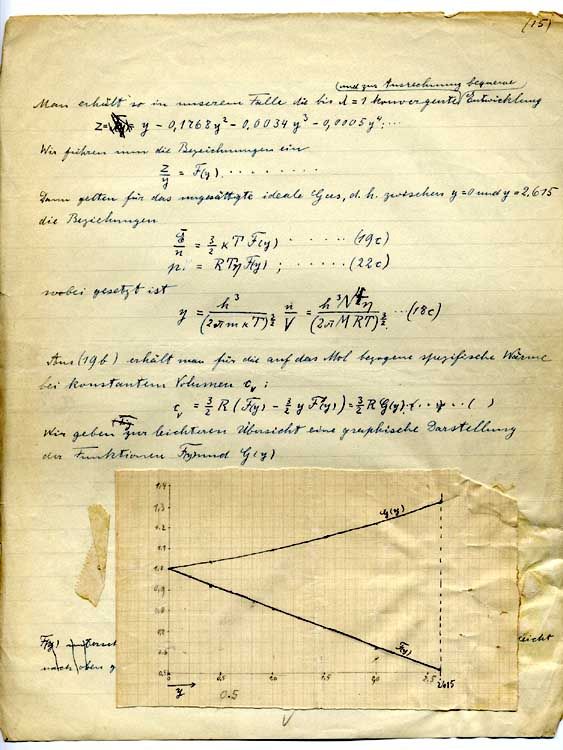 (15)
(und zur Ausrechnung bequeme)
Man erhält so in unserem Falle die bis λ = 1 konvergente Entwicklung
z = y − 0,1768 y² − 0,0034 y³ − 0,0005 y⁴...
Wir führen nun die Bezeichnungen ein
z/y = F(y) . . . . . . . .
Dann gelten für das ungesättigte ideale Gas, d. h. zwischen y = 0 und y = 2,615
die Beziehungen
Ē/n = 3/2 κT F(y) . . . . . (19c)
p = RTη F(y) ; . . . . . (22c)
wobei gesetzt ist
y = h³/(2πmκT)^{3/2} n/V = h³N⁴η/(2πMRT)^{3/2} ...(18c)
Aus (19b) erhält man für die auf das Mol bezogene spezifische Wärme
bei konstantem Volumen c_v :
c_v = 3/2 R (F(y) − 3/2 y F'(y)) = 3/2 R G(y) . . . . . ( )
Wir geben zur leichteren Übersicht eine graphische Darstellung
der Funktionen F(y) und G(y)
1.4
1.3
1.2
1.1
1.0
0,9
0,8
0,5
G(y)
F(y)
0
0,5
1,0
1,5
2,0
2,5
2.615
y
0.5
F(y)
leicht
nach oben g